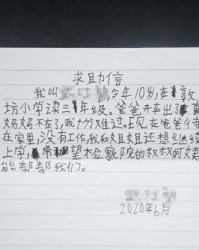 求助信
我叫 今年10岁,在敦
培小学读三年级。爸爸并卖出了
妈妈不在了,我十分难过。现在爸爸待
在家里,没有工作,我和姐姐还想继续
上学,希望检察院的叔叔阿姨
能帮帮我们。
2020年6月